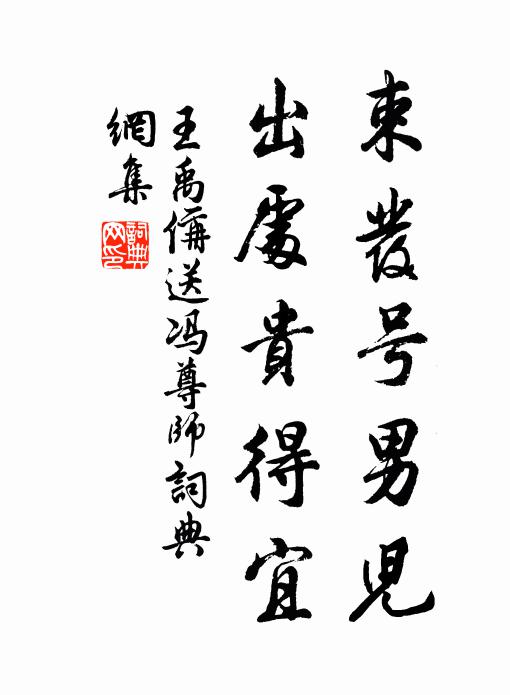 束發号男児
出處貴得宜
王禹偁送冯尊師詞典
網集
詞典
网印